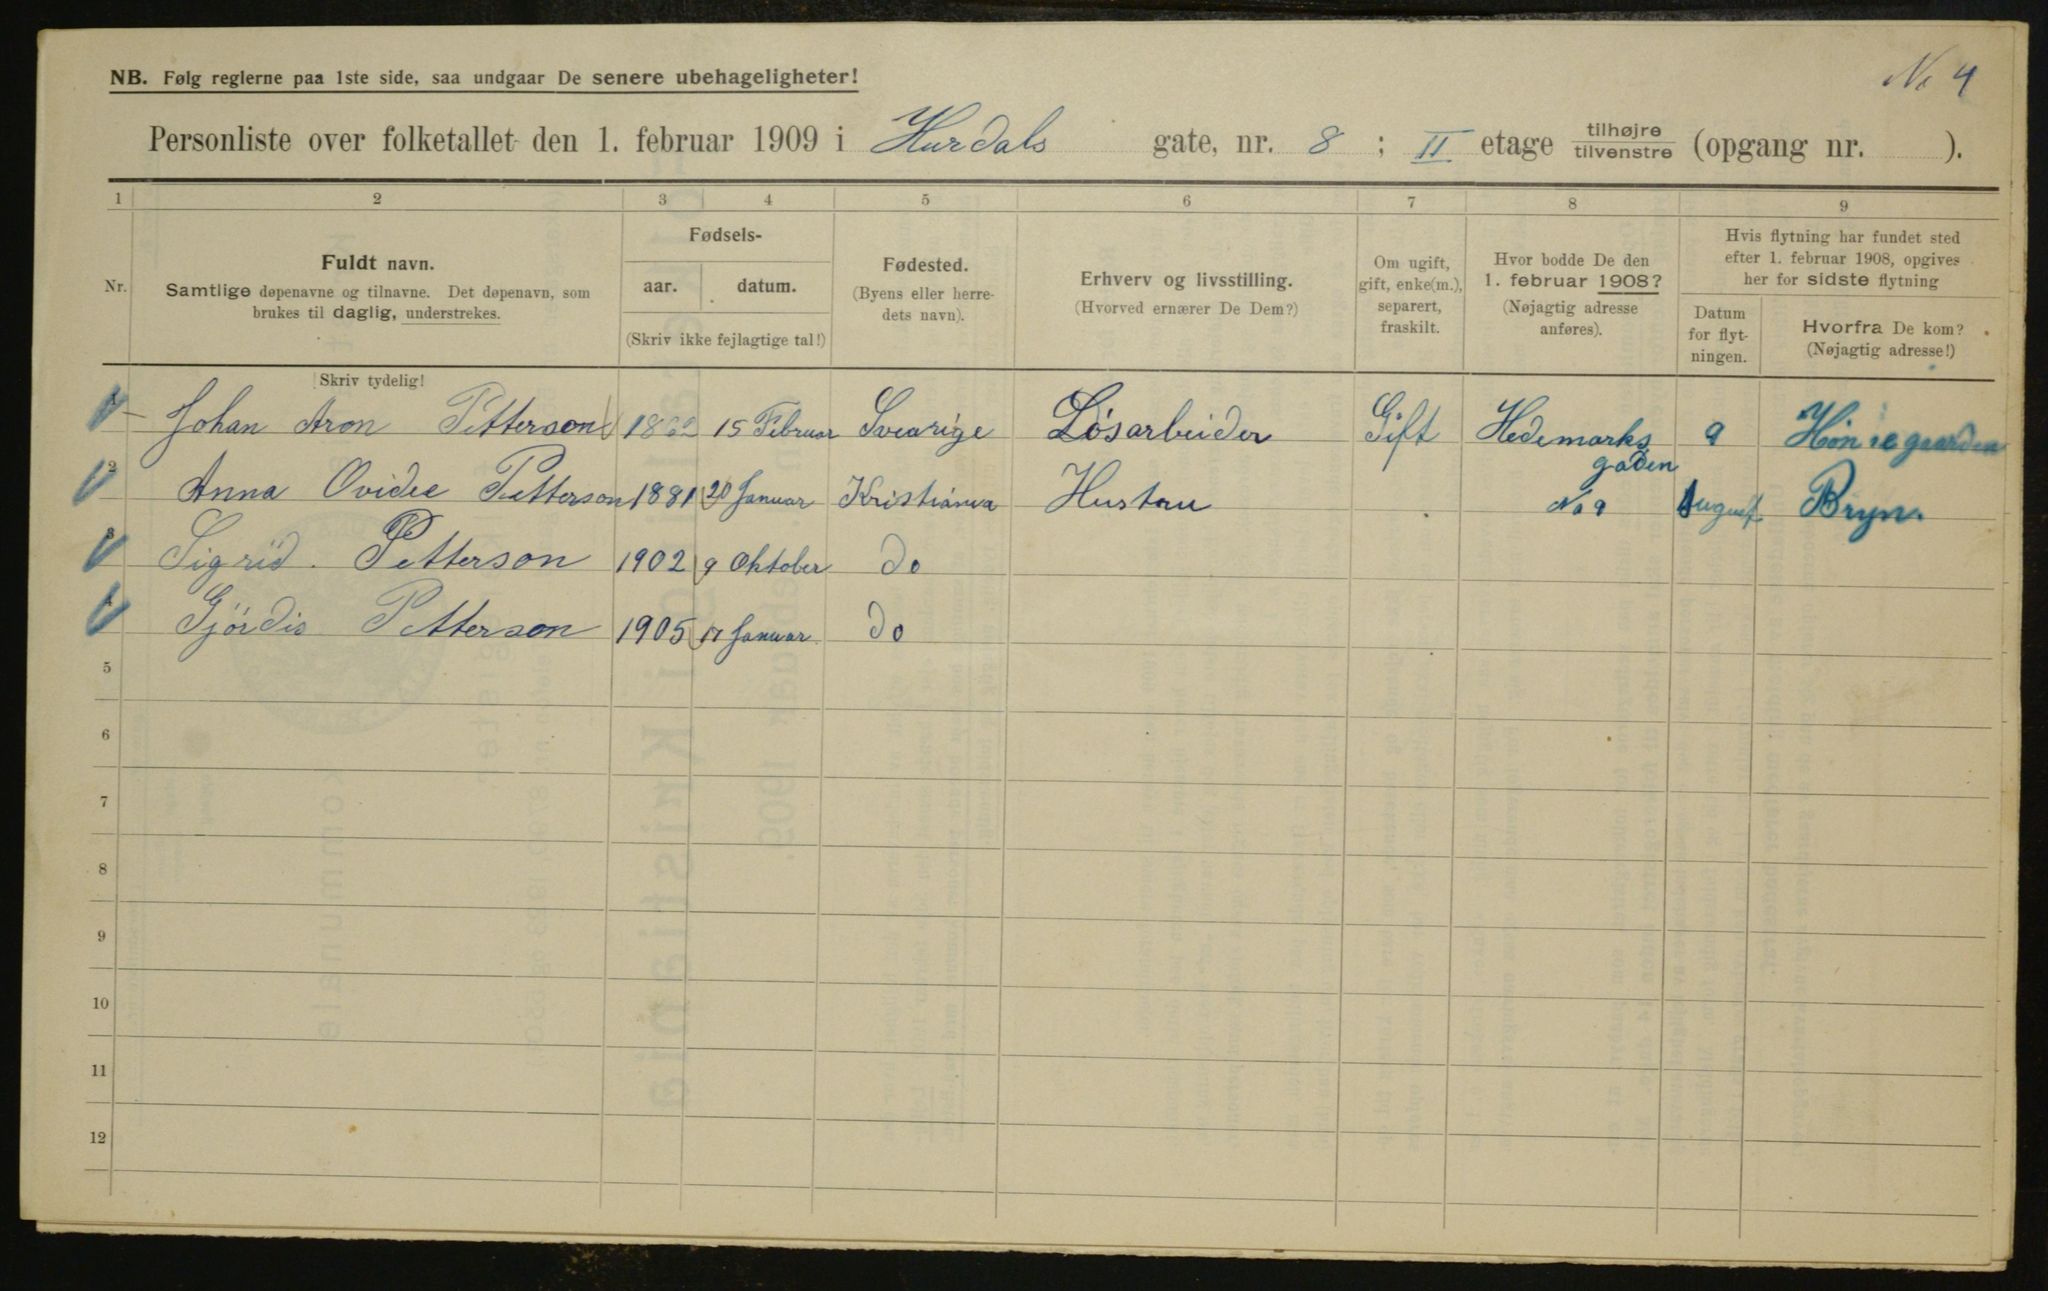 No 4
NB. Følg reglerne paa 1ste side, saa undgaar De senere ubehageligheter!
Personliste over folketallet den 1. februar 1909 i Hurdals gate, nr. 8 ; II etage tilhøjre tilvenstre (opgang nr. ).
1 2 3 4 5 6 7 8 9
Nr.
Fuldt navn.
Samtlige døpenavne og tilnavne. Det døpenavn, som
brukes til daglig, understrekes.
Fødsels-
aar. datum.
(Skriv ikke fejlagtige tal!)
Fødested.
(Byens eller herre-
dets navn).
Erhverv og livsstilling.
(Hvorved ernærer De Dem?)
Om ugift,
gift, enke(m.),
separert,
fraskilt.
Hvor bodde De den
1. februar 1908?
(Nøjagtig adresse
anføres).
Hvis flytning har fundet sted
efter 1. februar 1908, opgives
her for sidste flytning
Datum
for flyt-
ningen.
Hvorfra De kom?
(Nøjagtig adresse!)
Skriv tydelig!
1 Johan Aron Petterson 15 Februar Svearige Løsarbeider Gift Hedemarks 9
gaden
2 Anna Ovidee Petterson 1881 20 Januar Kristiania Hustru No 9 August Bryn.
3 Sigrid Petterson 1902 9 Oktober Do
4 Gjördis Petterson 1905 17 Januar Do
5
6
7
8
9
10
11
12